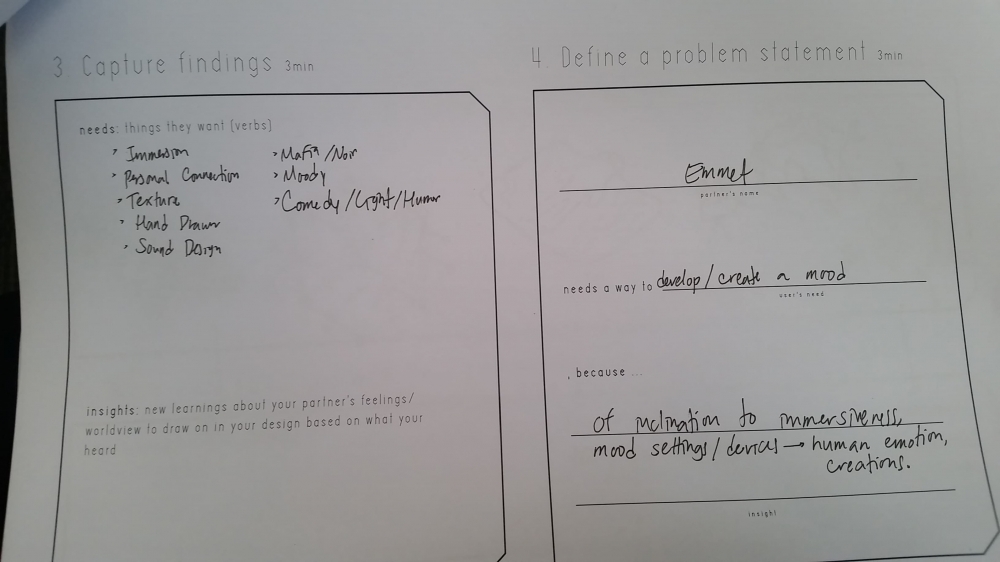 3. Capture findings 3min
needs: things they want (verbs)
> Immersion
> Personal Connection
> Texture
> Hand Drawn
> Sound Design
> Mafia/Noir
> Moody
> Comedy/Light/Humor
insights: new learnings about your partner's feelings/
worldview to draw on in your design based on what your
heard
4. Define a problem statement 3min
Emmet
partner's name
needs a way to develop/create a mood
user's need
, because ...
of inclination to immersiveness,
mood settings/devices → human emotion,
creations.
insight